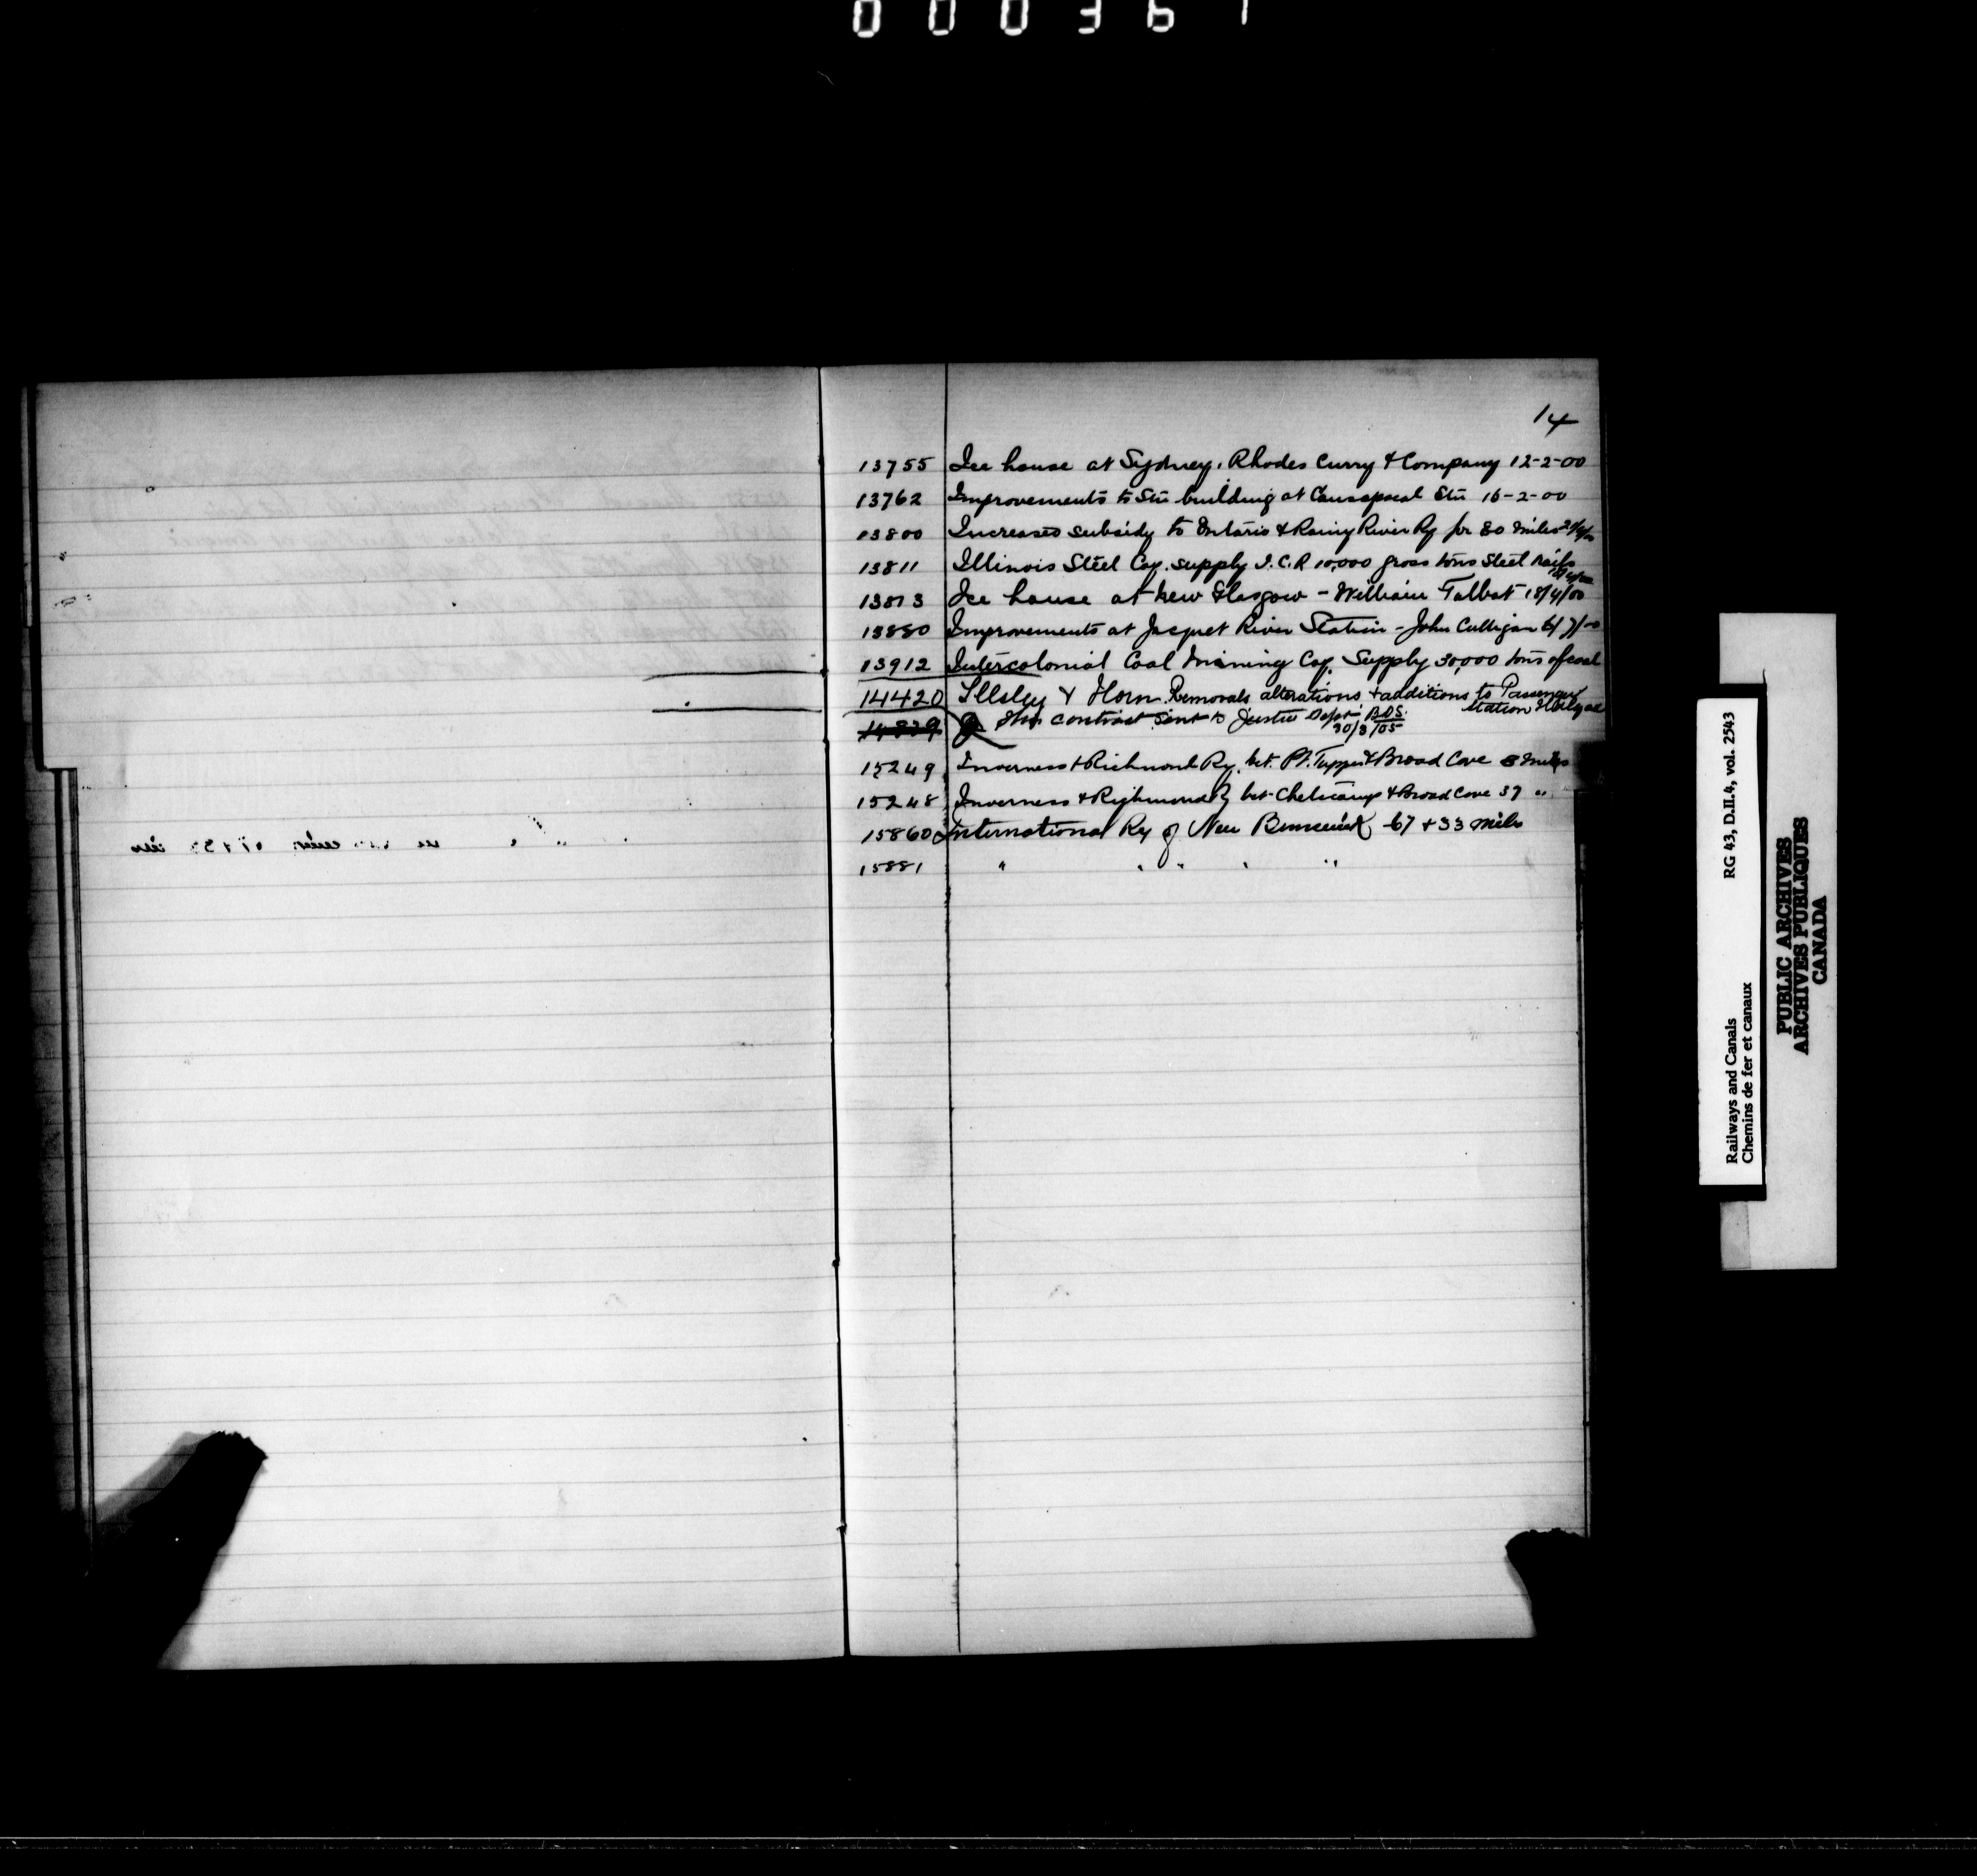 000367
14
13755 Ice house at Sydney. Rhodes Curry & Company 12-2-00
13762 Improvements to Stn building at Causapscal Stn 16-2-00
13800 Increased subsidy to Ontario & Rainy River Ry for 80 miles
13811 Illinois Steel Coy. supply I.C.R 10,000 gross tons Steel rails
13873 Ice house at New Glasgow - William Talbot 18/4/00
13880 Improvements at Jacquet River Station - John Culligan 6/7/00
13912 Intercolonial Coal Mining Coy. Supply 30,000 tons of coal
14420 Illsley & Horn. Removals alterations & additions to Passenger
Station
14839 This contract sent to Justice Dept B.D.S.
30/3/05
15249 Inverness & Richmond Ry. bet. Pt. Tupper & Broad Cove 8 miles
15248 Inverness & Richmond Ry bet Cheticamp & Broad Cove 37 "
15860 International Ry of New Brunswick 67 + 33 miles
15881 " " " " "
Railways and Canals RG 43, D.II.4, vol. 2543
Chemins de fer et canaux
PUBLIC ARCHIVES
ARCHIVES PUBLIQUES
CANADA